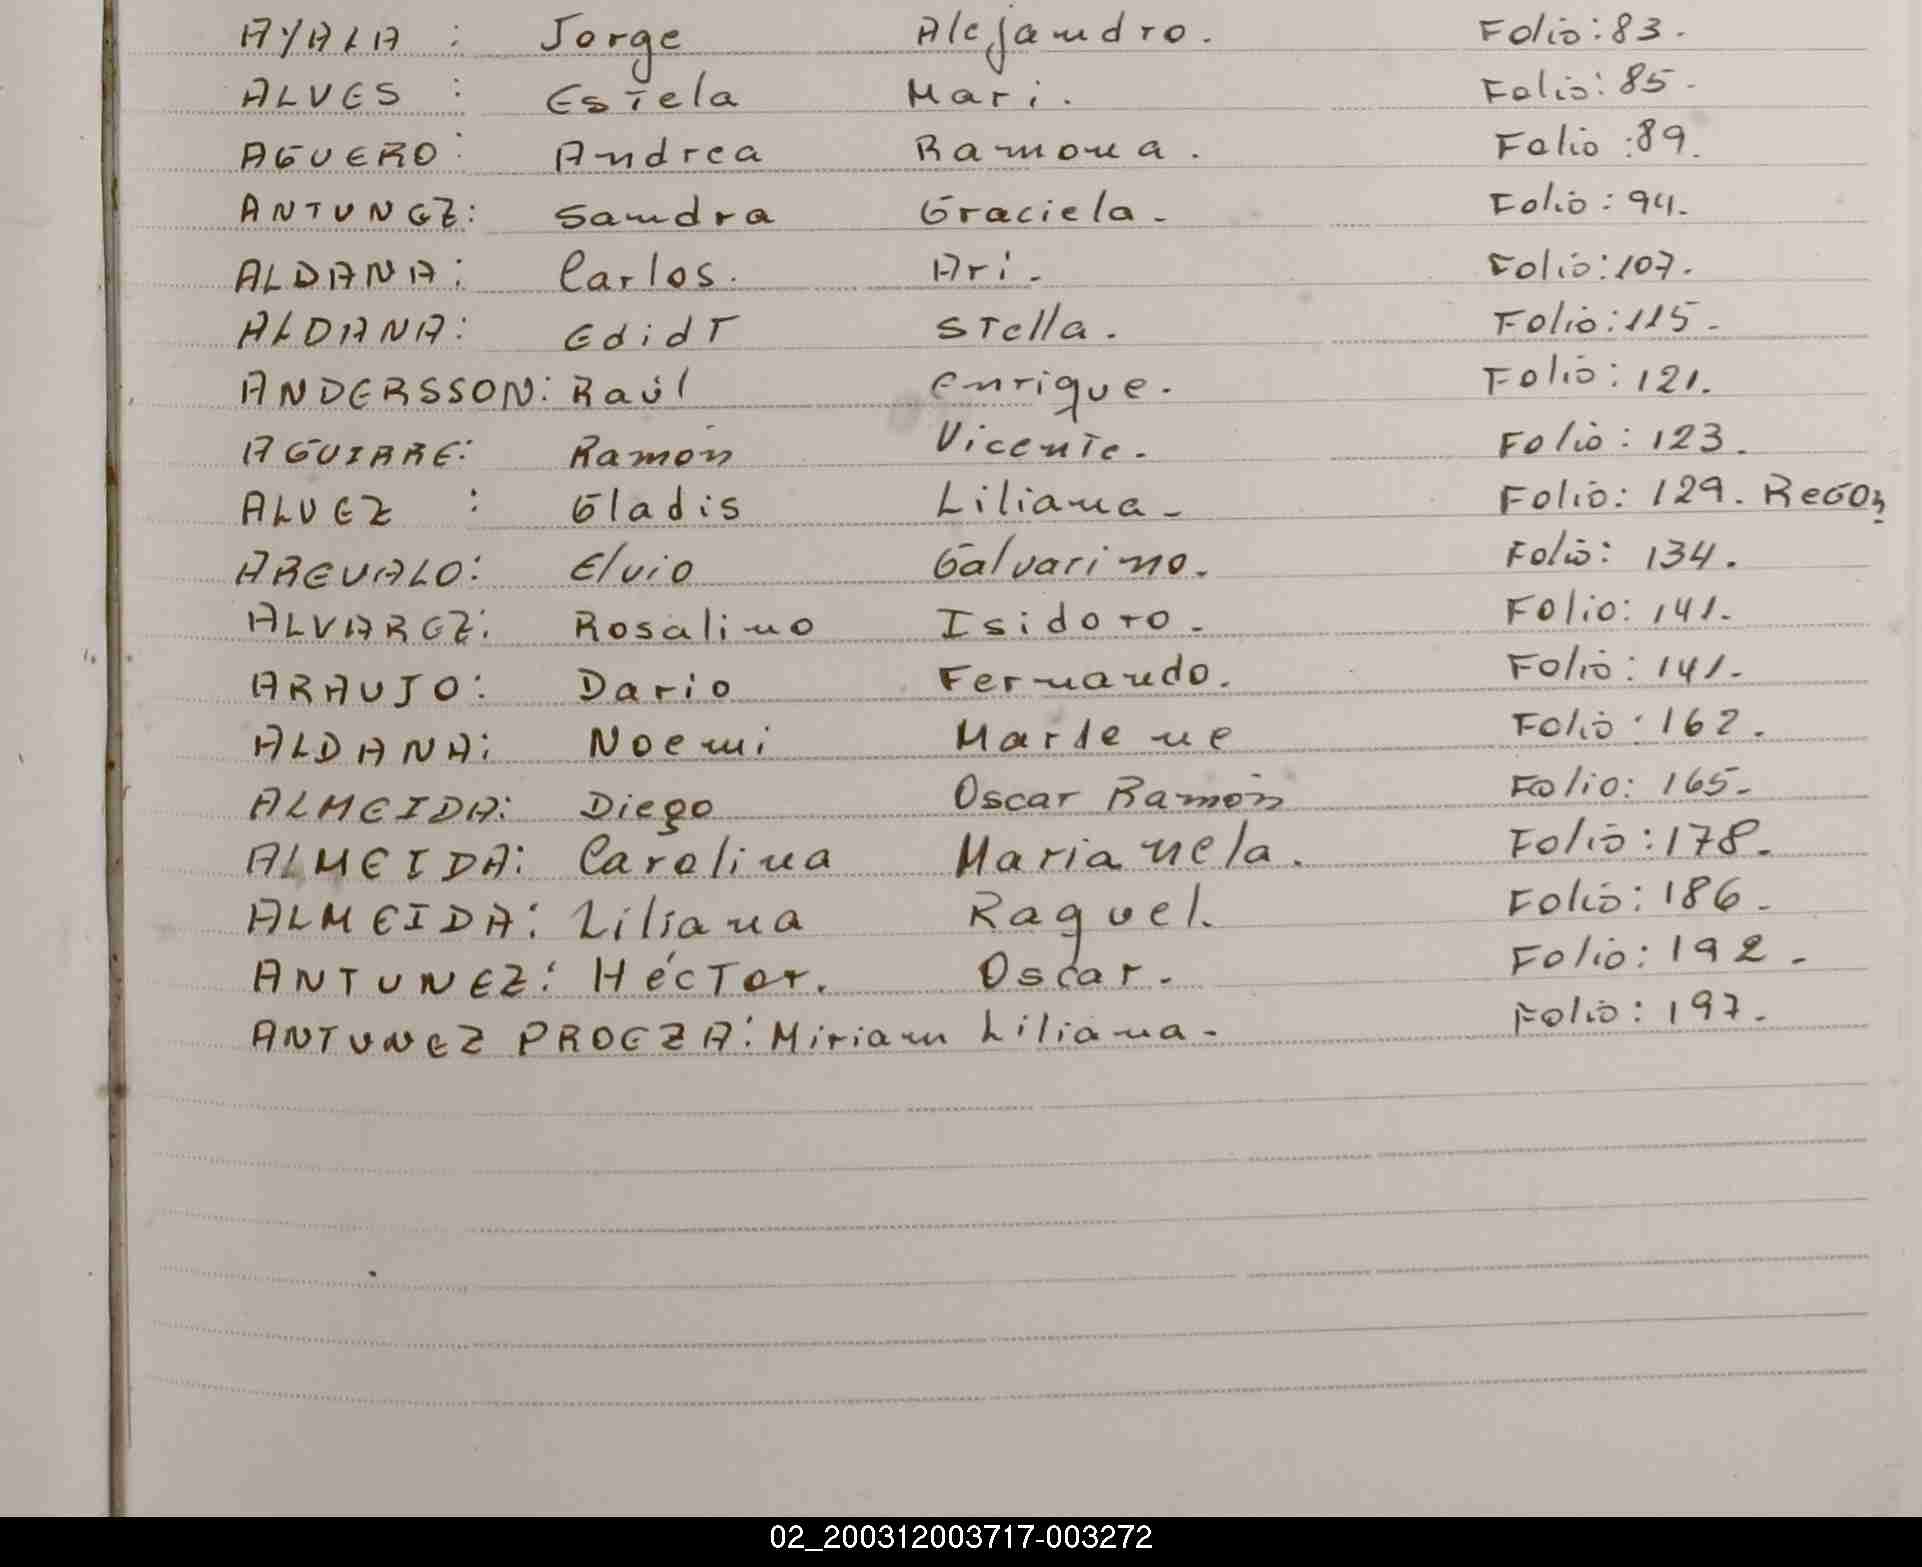 AYALA : Jorge Alejandro. Folio: 83.
ALVES : Estela Mari. Folio: 85.
AGUERO: Andrea Ramona. Folio: 89.
ANTUNEZ: Sandra Graciela. Folio: 94.
ALDANA: Carlos. Ari. Folio: 107.
ALDANA: EdidT Stella. Folio: 115.
ANDERSSON: Raúl enrique. Folio: 121.
AGUIRRE: Ramón Vicente. Folio: 123.
ALVEZ : Gladis Liliana. Folio: 129.
AREVALO: Elvio Galvarino. Folio: 134.
ALVAREZ: Rosalino Isidoro. Folio: 141.
ARAUJO: Dario Fernando. Folio: 141.
ALDANA: Noemi Marlene Folio: 162.
ALMEIDA: Diego Oscar Ramón Folio: 165.
ALMEIDA: Carolina Marianela. Folio: 178.
ALMEIDA: Liliana Raquel. Folio: 186.
ANTUNEZ: Héctor. Oscar. Folio: 192.
ANTUNEZ PROEZA: Miriam Liliana. Folio: 197.
02_200312003717-003272